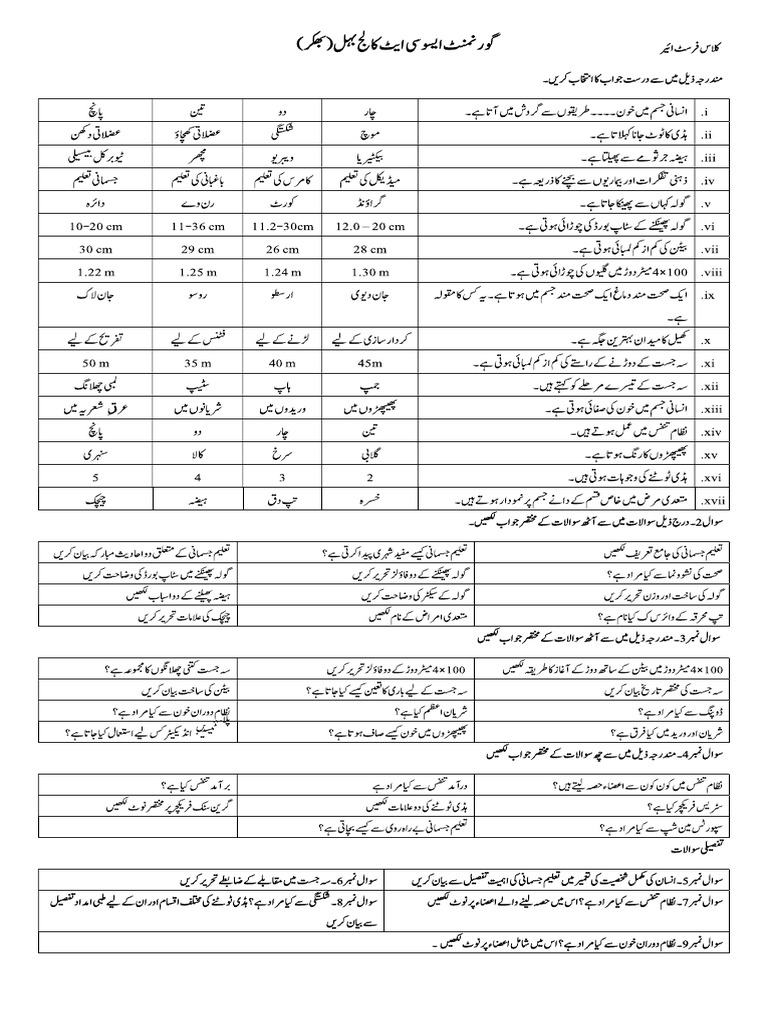 گورنمنٹ ایسوسی ایٹ کالج بہل (بھکر)
کلاس فرسٹ ائیر
مندرجہ ذیل میں سے درست جواب کا انتخاب کریں۔
.i انسانی جسم میں خون۔۔۔۔ طریقوں سے گروش میں آتا ہے۔ چار دو تین پانچ
.ii ہڈی کا ٹوٹ جانا کہلاتا ہے۔ موچ شکستگی عضلاتی کھچاؤ عضلاتی دکھن
.iii ہیضہ جرثومے سے پھیلتا ہے۔ بیکٹیریا ویبریو مچھر ٹیوبر کل بیسیلی
.iv ذہنی تفکرات اور بیماریوں سے بچنے کا ذریعہ ہے۔ میڈیکل کی تعلیم کامرس کی تعلیم باغبانی کی تعلیم جسمانی تعلیم
.v گولہ کہاں سے پھینکا جاتا ہے۔ گراؤنڈ کورٹ رن وے دائرہ
.vi گولہ پھینکنے کے سٹاپ بورڈ کی چوڑائی ہوتی ہے۔ 12.0 – 20 cm 11.2-30cm 11-36 cm 10-20 cm
.vii بیٹن کی کم از کم لمبائی ہوتی ہے۔ 28 cm 26 cm 29 cm 30 cm
.viii 4×100 میٹر دوڑ میں گلیوں کی چوڑائی ہوتی ہے۔ 1.30 m 1.24 m 1.25 m 1.22 m
.ix ایک صحت مند دماغ ایک صحت مند جسم میں ہوتا ہے۔ یہ کس کا مقولہ جان ڈیوی ارسطو روسو جان لاک
ہے۔
.x کھیل کا میدان بہترین جگہ ہے۔ کردار سازی کے لیے لڑنے کے لیے فٹنس کے لیے تفریح کے لیے
.xi سہ جست کے دوڑنے کے راستے کی کم از کم لمبائی ہوتی ہے۔ 45m 40 m 35 m 50 m
.xii سہ جست کے تیسرے مرحلے کو کہتے ہیں۔ جمپ ہاپ سٹیپ لمبی چھلانگ
.xiii انسانی جسم میں خون کی صفائی ہوتی ہے۔ پھیپھڑوں میں وریدوں میں شریانوں میں عرق شعریہ میں
.xiv نظام تنفس میں عمل ہوتے ہیں۔ تین چار دو پانچ
.xv پھیپھڑوں کا رنگ ہوتا ہے۔ گلابی سرخ کالا سنہری
.xvi ہڈی ٹوٹنے کی وجوہات ہوتی ہیں۔ 2 3 4 5
.xvii متعدی مرض میں خاص قسم کے دانے جسم پر نمودار ہوتے ہیں۔ خسرہ تپ دق ہیضہ چیچک
سوال 2۔ درج ذیل سوالات میں سے آٹھ سوالات کے مختصر جواب لکھیں۔
تعلیم جسمانی کی جامع تعریف لکھیں تعلیم جسمانی کیسے مفید شہری پیدا کرتی ہے؟ تعلیم جسمانی کے متعلق دو احادیث مبارکہ بیان کریں
صحت کی نشوونما سے کیا مراد ہے؟ گولہ پھینکنے کے دو فاؤلز تحریر کریں گولہ پھینکنے میں سٹاپ بورڈ کی وضاحت کریں
گولہ کی ساخت اور وزن تحریر کریں گولہ کے سیکٹر کی وضاحت کریں ہیضہ پھیلنے کے دو اسباب لکھیں
تپ محرقہ کے وائرس ک کیا نام ہے؟ متعدی امراض کے نام لکھیں چیچک کی علامات تحریر کریں
سوال نمبر 3۔ مندرجہ ذیل میں سے آٹھ سوالات کے مختصر جواب لکھیں
4×100 میٹر دوڑ میں بیٹن کے ساتھ دوڑ کے آغاز کا طریقہ لکھیں 4×100 میٹر دوڑ کے دو فاؤلز تحریر کریں سہ جست کتنی چھلانگوں کا مجموعہ ہے؟
سہ جست کی مختصر تاریخ بیان کریں سہ جست کے لیے باری کا تعین کیسے کیا جاتا ہے؟ بیٹن کی ساخت بیان کریں
ڈوپنگ سے کیا مراد ہے؟ شریان اعظم کیا ہے؟ نظام دوران خون سے کیا مراد ہے؟
شریان اور ورید میں کیا فرق ہے؟ پھیپھڑوں میں خون کیسے صاف ہوتا ہے؟ انڈیکیٹر کس لیے استعمال کیا جاتا ہے؟
سوال نمبر 4۔ مندرجہ ذیل میں سے چھ سوالات کے مختصر جواب لکھیں
نظام تنفس میں کون کون سے اعضاء حصہ لیتے ہیں؟ درآمد تنفس سے کیا مراد ہے برآمد تنفس کیا ہے؟
سٹریس فریکچر کیا ہے؟ ہڈی ٹوٹنے کی دو علامات لکھیں گرین سٹک فریکچر پر مختصر نوٹ لکھیں
سپورٹس مین شپ سے کیا مراد ہے؟ تعلیم جسمانی بے راہ روی سے کیسے بچاتی ہے؟
تفصیلی سوالات
سوال نمبر 5۔ انسان کی مکمل شخصیت کی تعمیر میں تعلیم جسمانی کی اہمیت تفصیل سے بیان کریں سوال نمبر 6۔ سہ جست میں مقابلے کے ضابطے تحریر کریں
سوال نمبر 7۔ نظام تنفس سے کیا مراد ہے؟ اس میں حصہ لینے والے اعضاء پر نوٹ لکھیں سوال نمبر 8۔ شکستگی سے کیا مراد ہے؟ ہڈی ٹوٹنے کی مختلف اقسام اور ان کے لیے طبی امداد تفصیل
سے بیان کریں
سوال نمبر 9۔ نظام دوران خون سے کیا مراد ہے؟ اس میں شامل اعضاء پر نوٹ لکھیں ۔